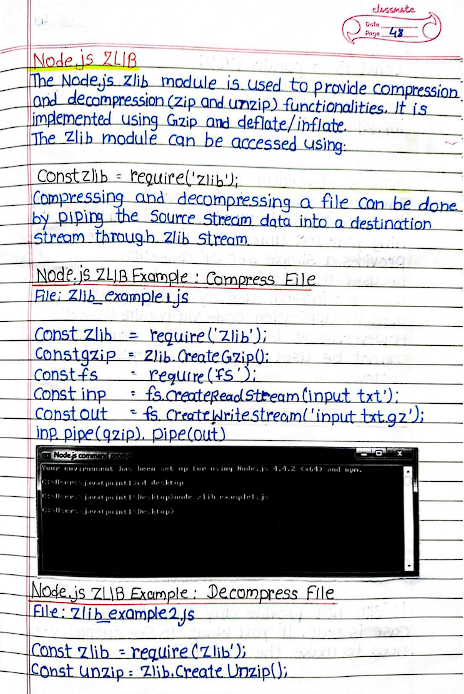 classmate
Date
Page 48
Node.js ZLIB
The Node.js Zlib module is used to provide compression
and decompression (zip and unzip) functionalities. It is
implemented using Gzip and deflate/inflate.
The Zlib module can be accessed using:
Const zlib = require('zlib');
Compressing and decompressing a file can be done
by piping the source stream data into a destination
stream through zlib stream
Node.js ZLIB Example : Compress File
File: zlib_example1.js
Const zlib = require('zlib');
Const gzip = zlib.CreateGzip();
Const fs = require('fs');
Const inp = fs.CreateReadStream('input txt');
Const out = fs.CreateWriteStream('input txt.gz');
inp. pipe(gzip). pipe(out)
Node.js command prompt
Your environment has been set up for using Node.js 4.4.2 (x64) and npm.
C:\Users\javatpoint1>cd desktop
C:\Users\javatpoint1\Desktop>node zlib_example1.js
C:\Users\javatpoint1\Desktop>
Node.js ZLIB Example : Decompress File
File: zlib_example2.js
Const zlib = require('zlib');
Const unzip = zlib.Create Unzip();